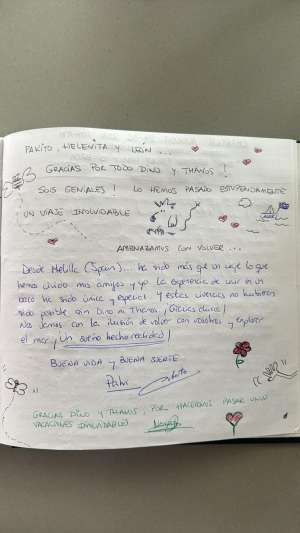 PAKITO, HELENITA Y LEÓN...
GRACIAS POR TODO DINO Y THANOS!
SOIS GENIALES! LO HEMOS PASADO ESTUPENDAMENTE
UN VIAJE INOLVIDABLE
AMENAZAMOS CON VOLVER...
Desde Melilla (Spain)... ha sido más que un viaje lo que
hemos vivido mis amigos y yo. La experiencia de vivir en un
barco ha sido única y especial. Y estas vivencias no hubieran
sido posible sin Dino ni Thanos, ¡Gracias chicos!
Nos vamos con la ilusión de volver con vosotros y explorar
el mar, ¡Un sueño hecho realidad!
BUENA VIDA Y BUENA SUERTE
GRACIAS DINO Y THANOS, POR HACERNOS PASAR UNAS
VACACIONES INOLVIDABLES